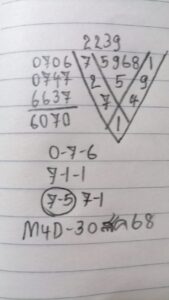 2239
0706 7 5968 1
0747 2 5 9
6637 7 4
6070 1
0-7-6
7-1-1
7-5 7-1
M4D-30 68